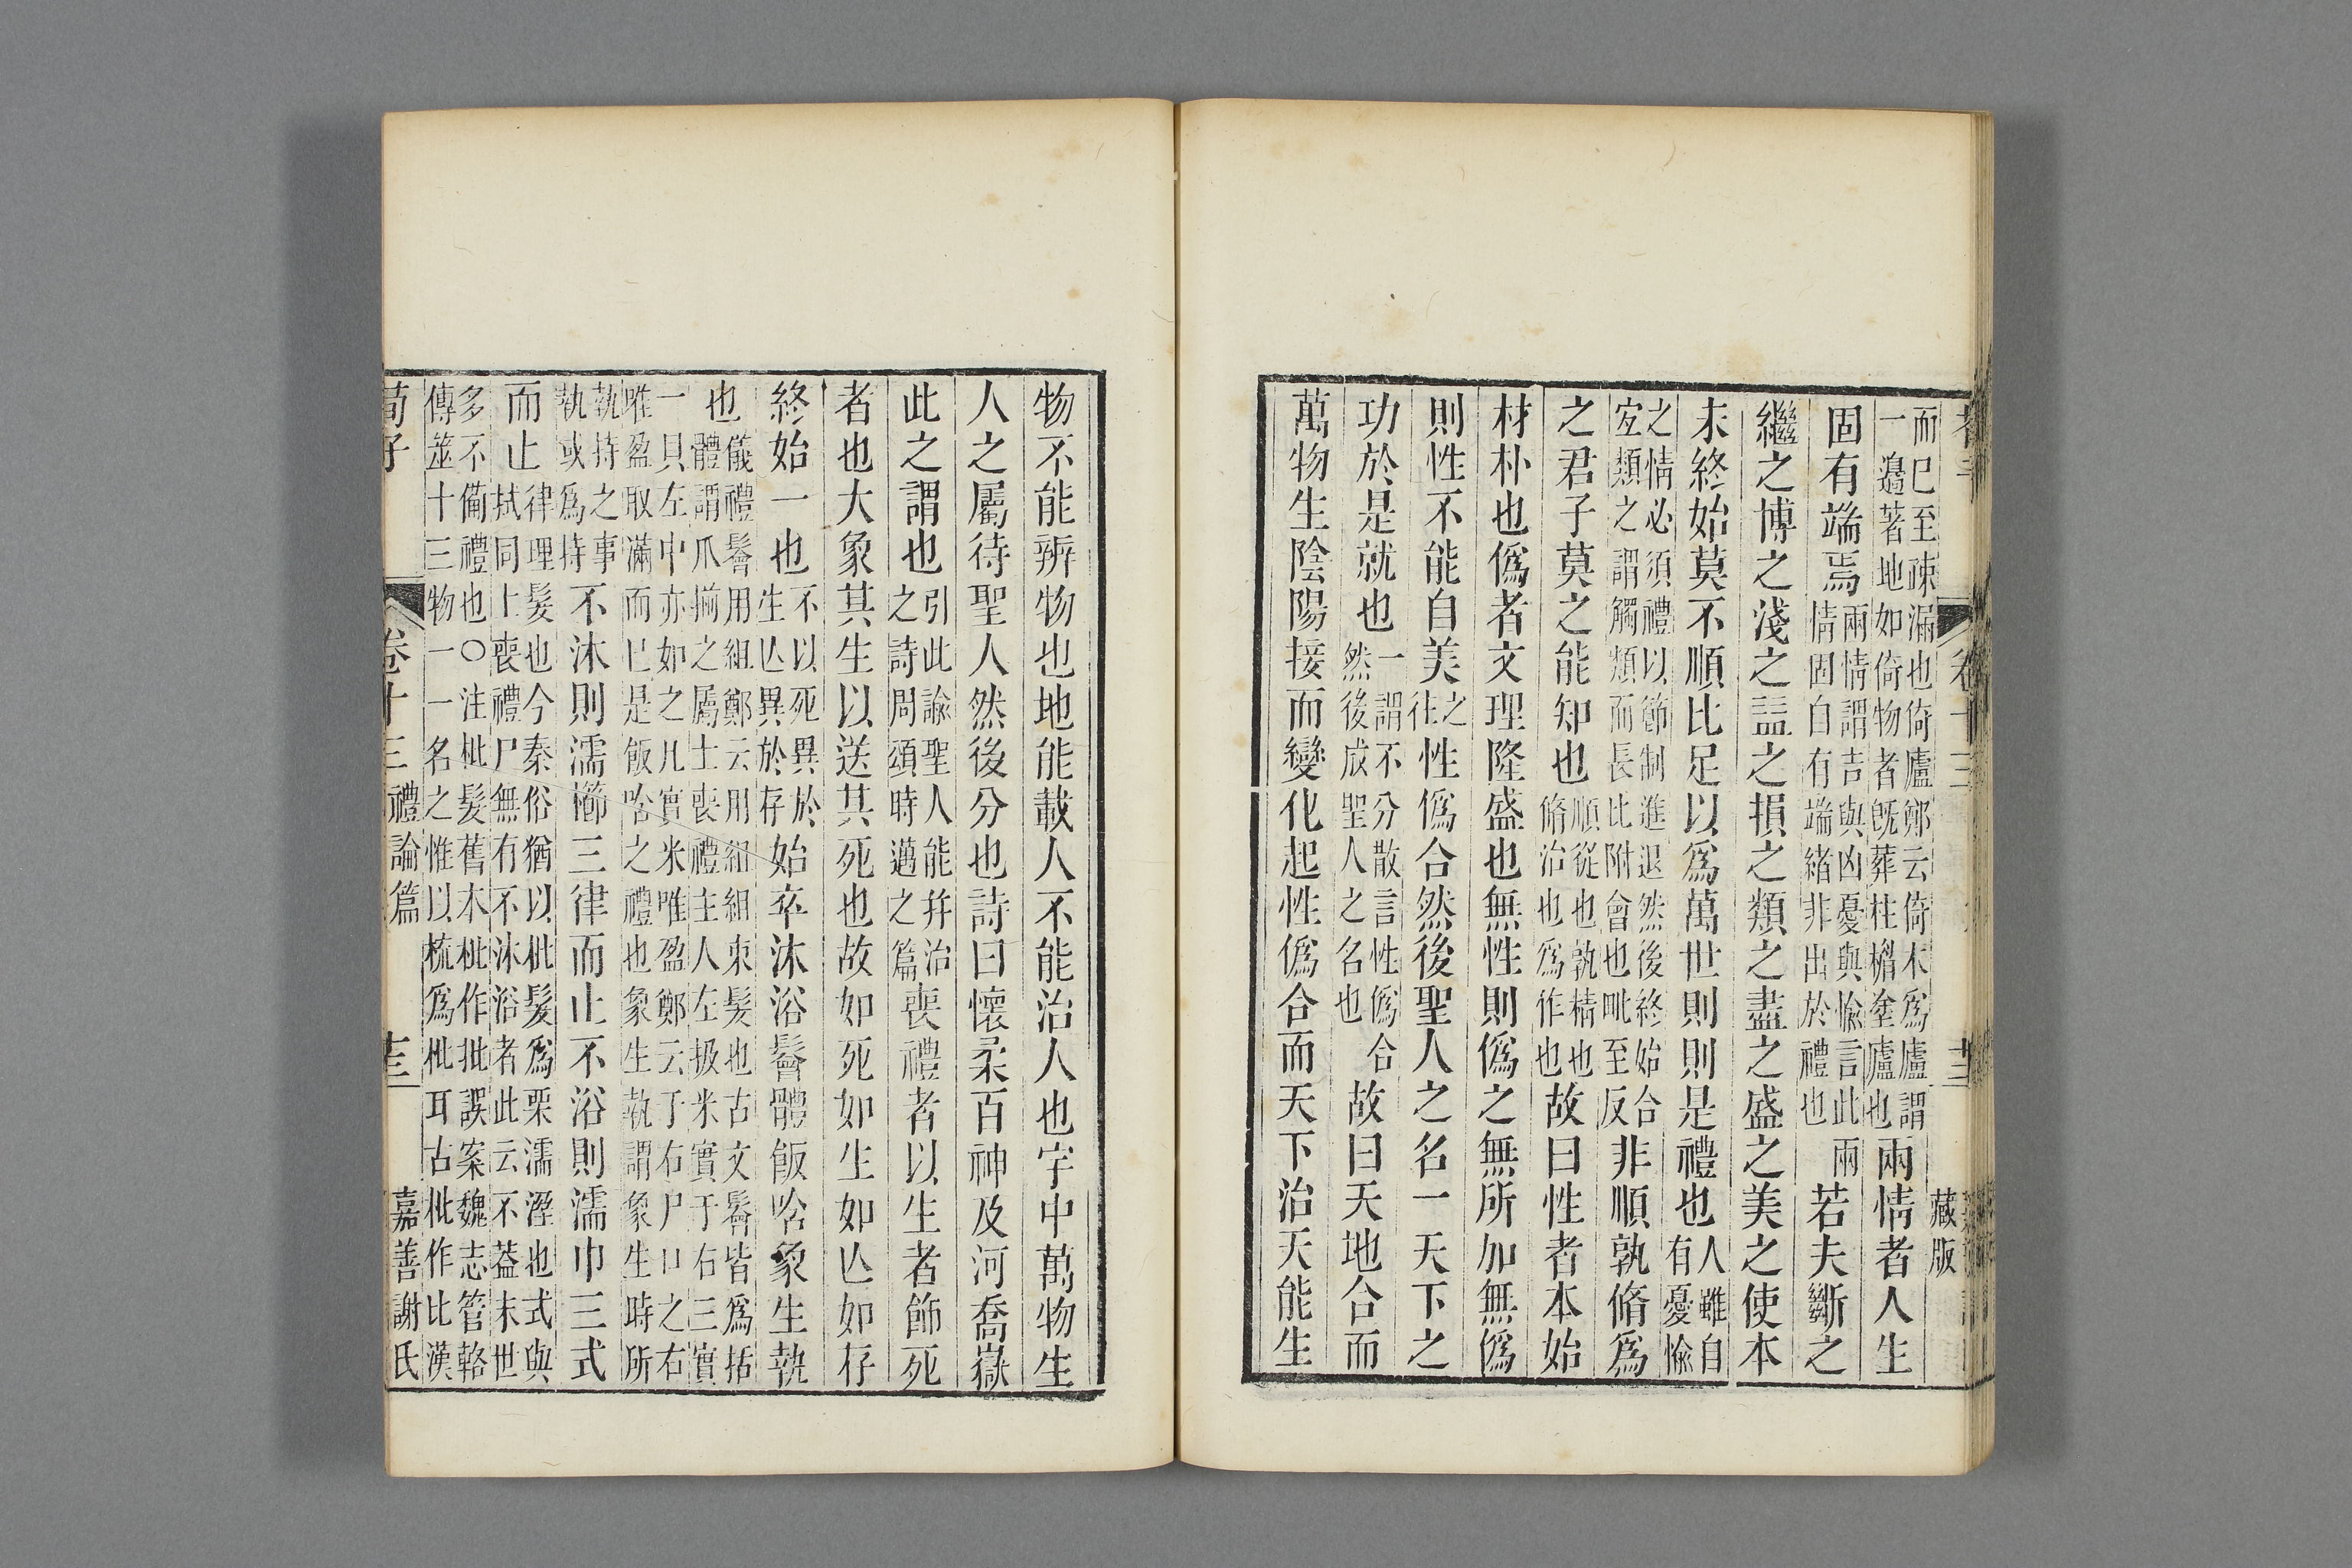 而已至疎漏也倚廬鄭云倚木爲廬謂一邉著地如倚物者旣葬柱楣塗廬也兩情者人生
固有端焉兩情謂吉與凶憂與愉言此兩情固自有端緒非出於禮也若夫斷之
繼之博之淺之益之損之類之盡之盛之美之使本
末終始莫不順比足以爲萬世則則是禮也人雖自有憂愉
之情必須禮以節制進退然後終始合宐類之謂觸類而長比附會也毗至反非順孰脩爲
之君子莫之能知也順從也孰精也脩治也爲作也故曰性者本始
材朴也僞者文理隆盛也無性則僞之無所加無僞
則性不能自美之往性僞合然後聖人之名一天下之
功於是就也一謂不分散言性僞合然後成聖人之名也故曰天地合而
萬物生陰陽接而變化起性僞合而天下治天能生
物不能辨物也地能載人不能治人也宇中萬物生
人之屬待聖人然後分也詩曰懷柔百神及河喬嶽
此之謂也引此諭聖人能幷治之詩周頌時邁之篇喪禮者以生者飾死
者也大象其生以送其死也故如死如生如亾如存
終始一也不以死異於生亾異於存始卒沐浴鬠體飯唅象生執
也儀禮鬠用組鄭云用組組束髮也古文鬠皆爲括體謂爪揃之屬士喪禮主人左扱米實于右三實
一貝左中亦如之凡實米唯盈鄭云于右尸口之右唯盈取滿而已是飯唅之禮也象生執謂象生時所
執持之事執或爲持不沐則濡櫛三律而止不浴則濡巾三式
而止律理髮也今秦俗猶以枇髮爲栗濡溼也式與拭同士喪禮尸無有不沐浴者此云不葢末世
多不備禮也○注枇髮舊本枇作批誤案魏志管輅傳筮十三物一一名之惟以梳爲枇耳古枇作比漢
荀子 卷十三 禮論篇 十三 嘉善謝氏
藏版